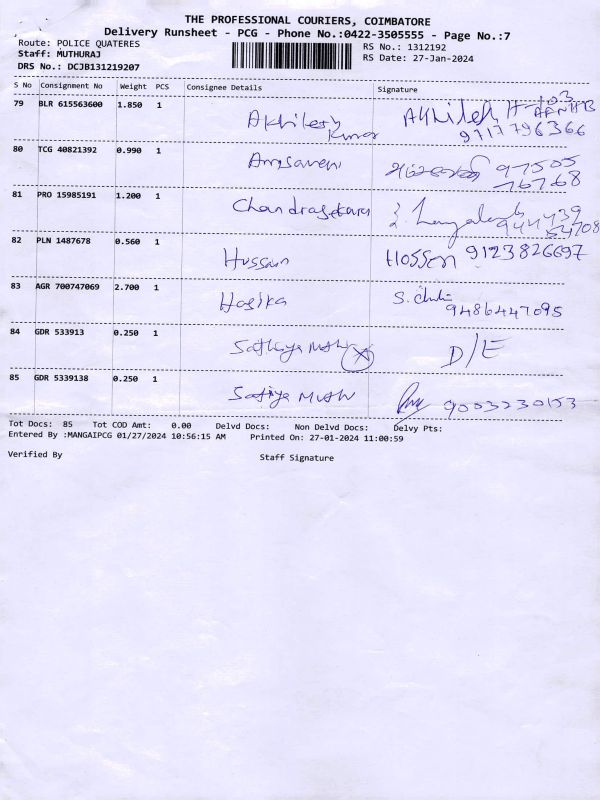 THE PROFESSIONAL COURIERS, COIMBATORE
Delivery Runsheet - PCG - Phone No.:0422-3505555 - Page No.:7
Route: POLICE QUATERES RS No.: 1312192
Staff: MUTHURAJ RS Date: 27-Jan-2024
DRS No.: DCJB131219207
S No Consignment No Weight PCS Consignee Details Signature
79 BLR 615563600 1.850 1 Akhilesh Kumar Akhilesh
9717796366
80 TCG 40821392 0.990 1 97505
76768
81 PRO 15985191 1.200 1 Chandrasekaran
944439
82 PLN 1487678 0.560 1 Hussain Hossen 9123826697
83 AGR 700747069 2.700 1 Hasika
9486447095
84 GDR 533913 0.250 1 Sathiya Muth D/E
85 GDR 5339138 0.250 1 Satiya Muth 9003230153
Tot Docs: 85 Tot COD Amt: 0.00 Delvd Docs: Non Delvd Docs: Delvy Pts:
Entered By :MANGAIPCG 01/27/2024 10:56:15 AM Printed On: 27-01-2024 11:00:59
Verified By Staff Signature